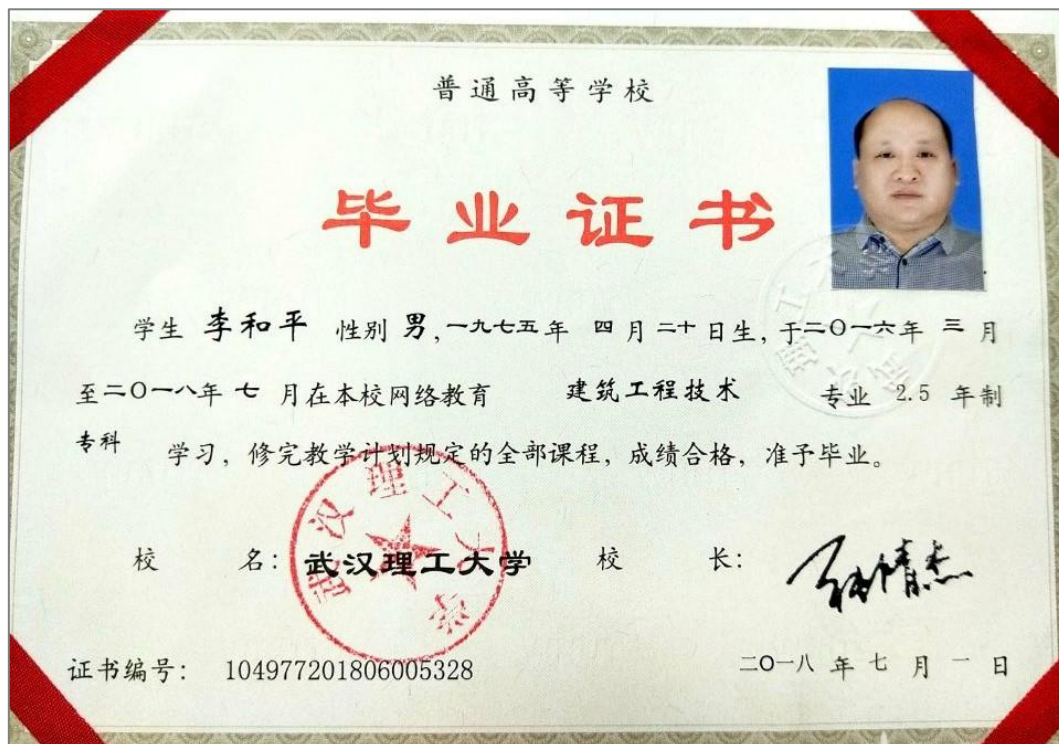 普通高等学校
毕业证书
学生 李和平 性别 男,一九七五年 四月二十日生,于二〇一六年 三月
至二〇一八年 七 月在本校网络教育 建筑工程技术 专业 2.5 年制
专科 学习,修完教学计划规定的全部课程,成绩合格,准予毕业。
校 名: 武汉理工大学 校 长:
武汉理工大学
证书编号: 104977201806005328 二〇一八 年 七 月 一 日